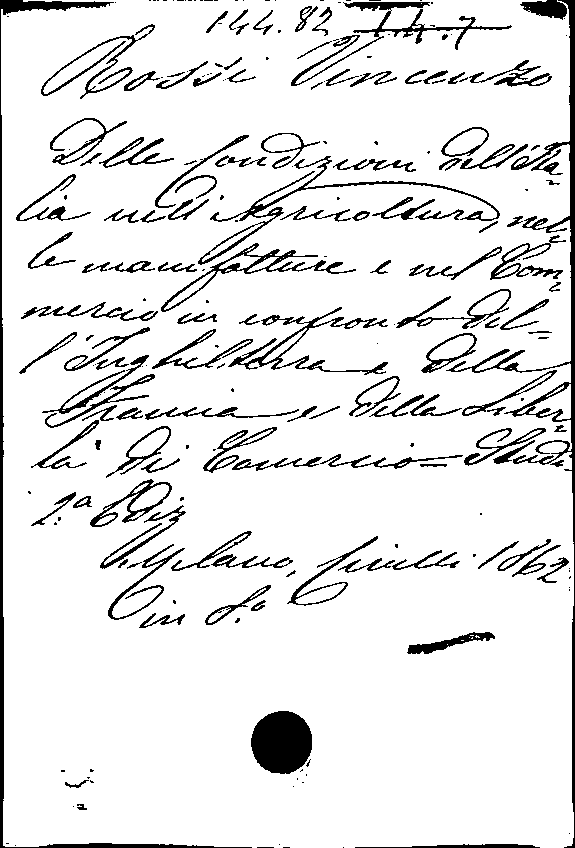 144.82 14.7
Rossi Vincenzo
Delle Condizioni dell'Ita-
lia nell'Agricoltura, nel-
le manifatture e nel Com-
mercio in confronto del-
l'Inghilterra e della
Francia e della Liber-
tà di Comercio - Studi
2.a Ediz
Milano, Cirelli 1862
in 8.o